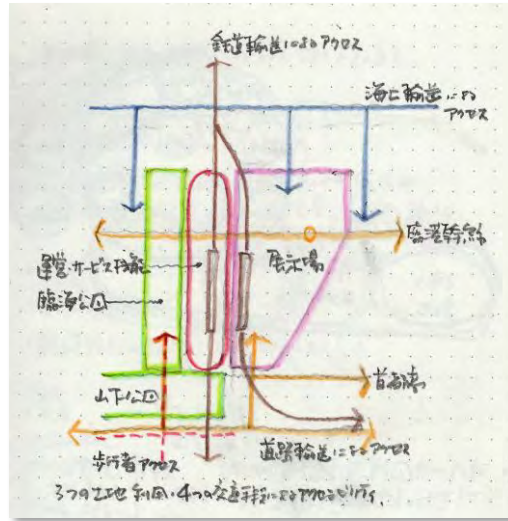 鉄道輸送によるアクセス
海上輸送による
アクセス
臨港幹線
運営・サービス機能
展示場
臨海公園
山下公園
首都高
道路輸送によるアクセス
歩行者アクセス
3つの土地利用・4つの交通手段によるアクセシビリティ.